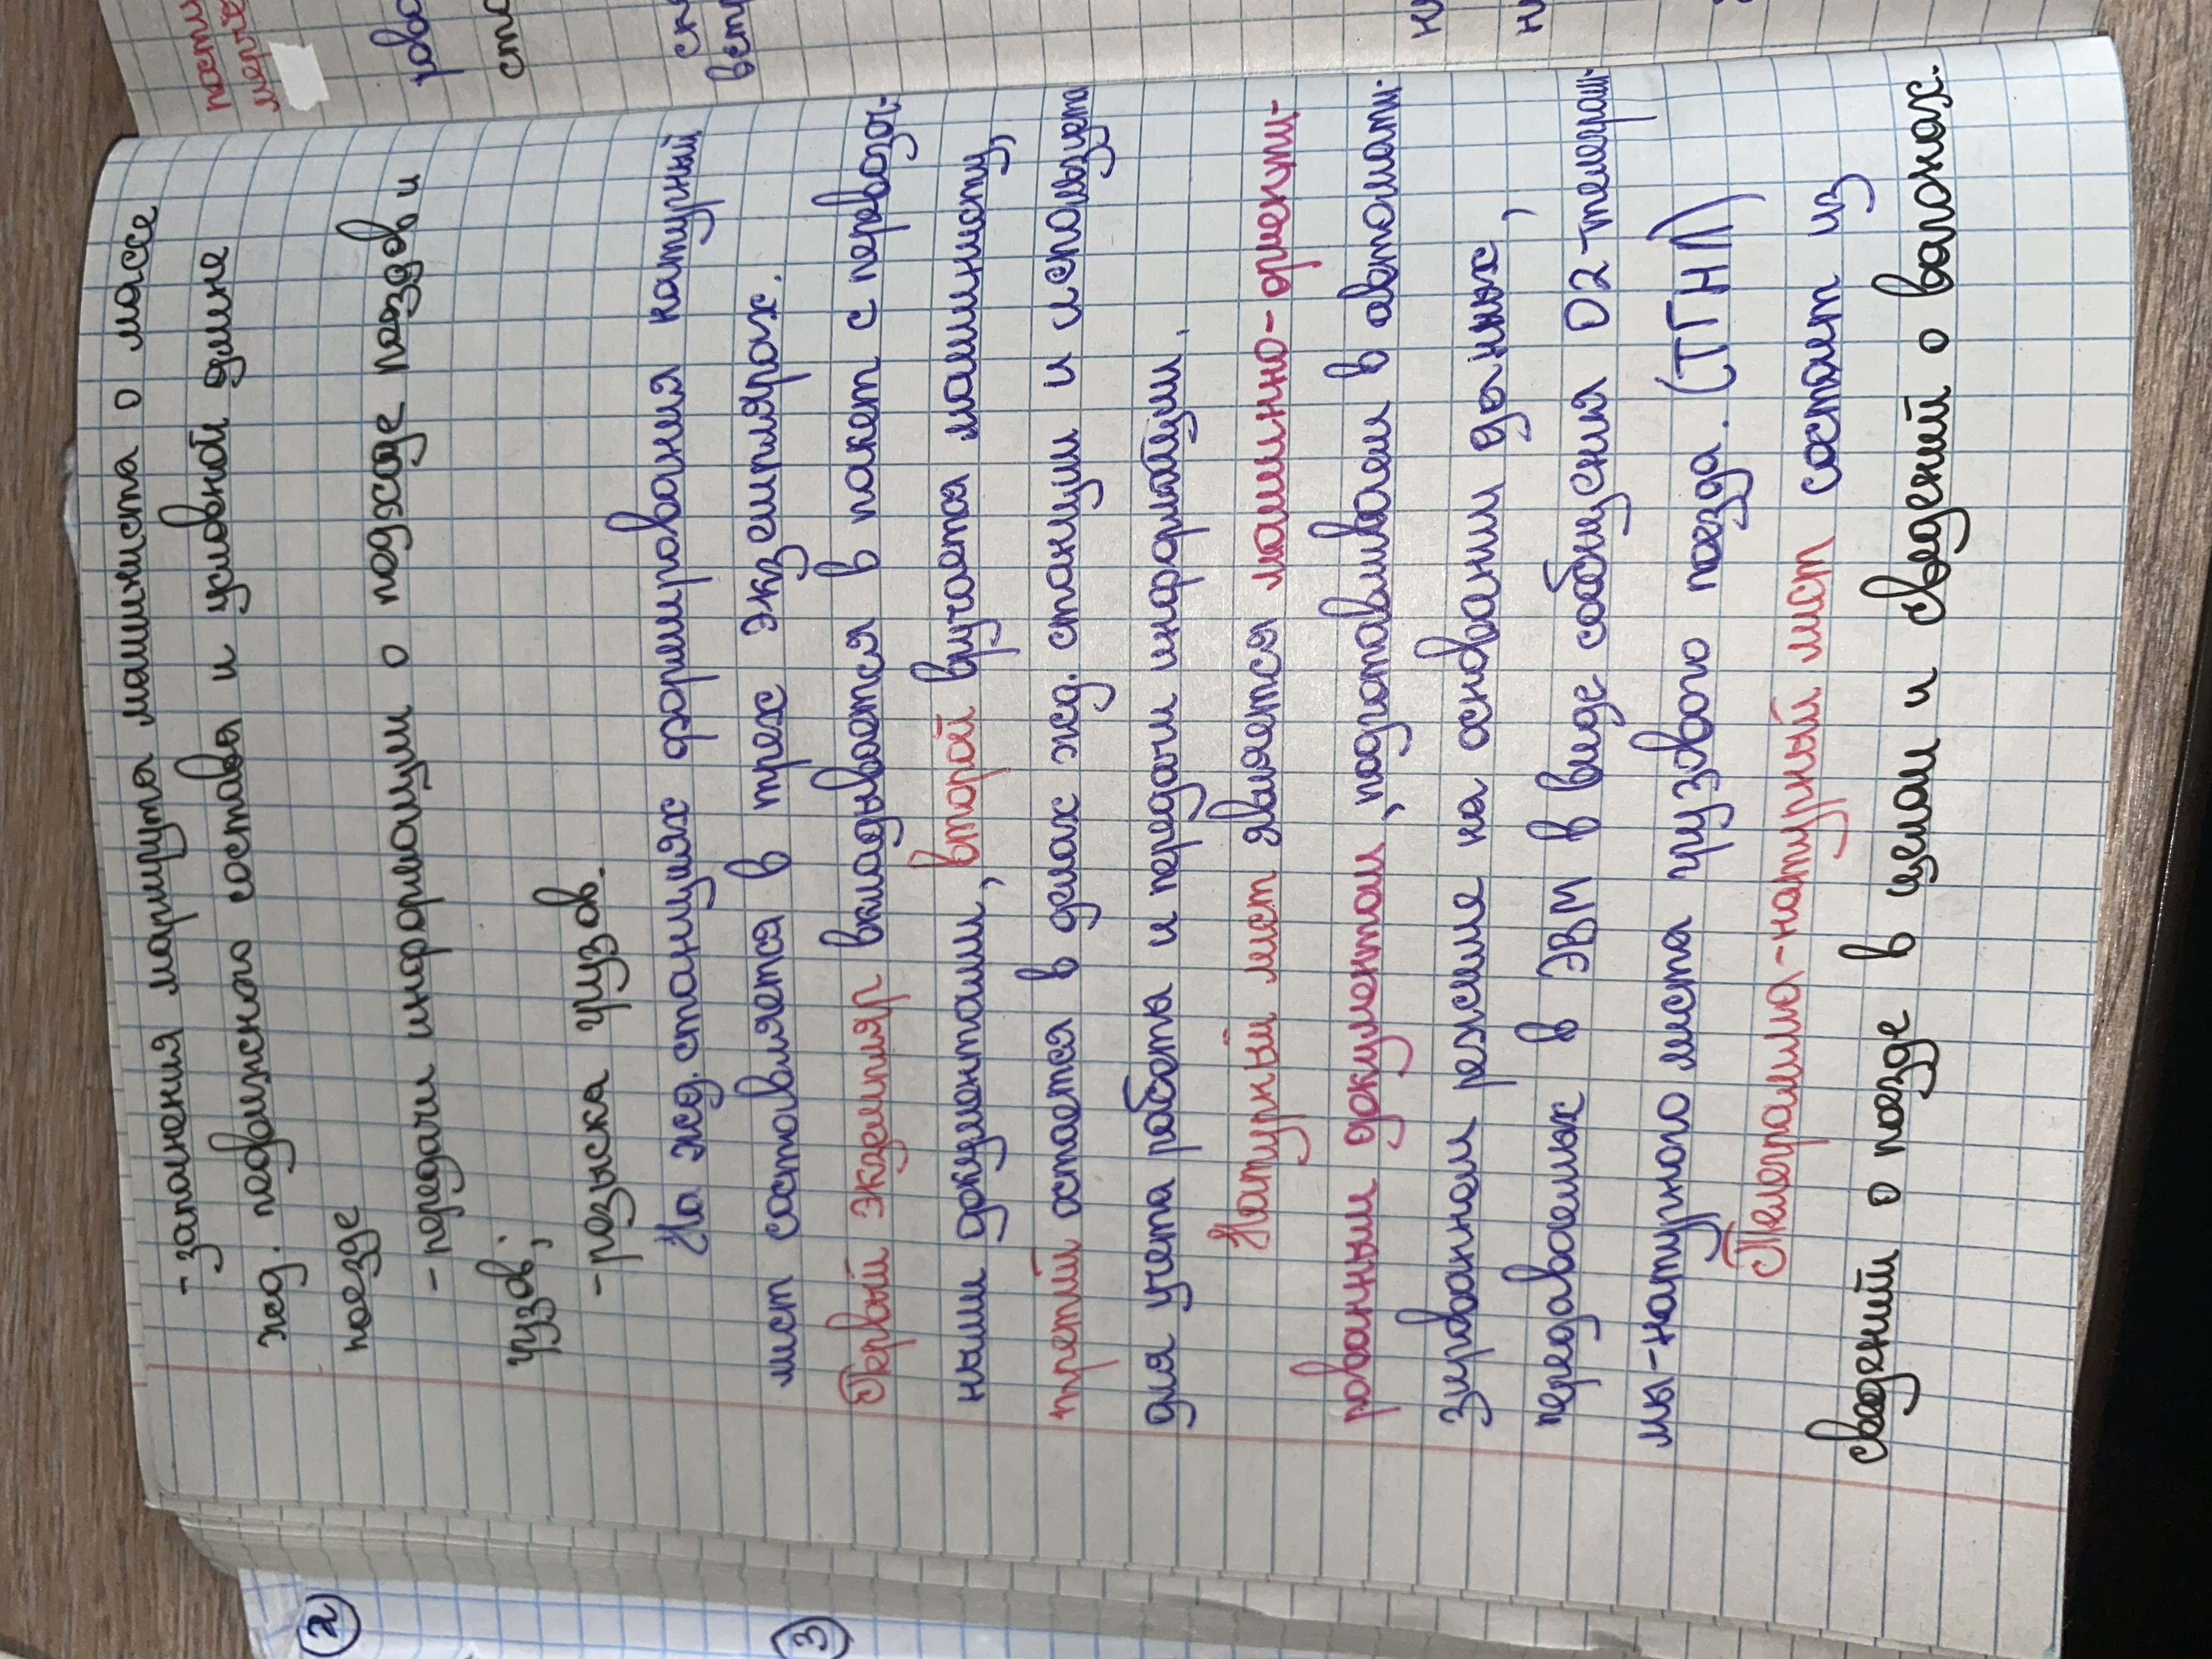 - заполнения маршрута машиниста о массе
жд. подвижного состава и условной длине
поезде
- передачи информации о подходе поездов и
грузов;
- розыска грузов.
На жд. станциях формирования натурный
лист составляется в трех экземплярах.
Первый экземпляр вкладывается в пакет с перевозоч-
ными документами, второй вручается машинисту,
третий остается в делах жд. станции и использует
для учета работы и передачи информации.
Натурный лист является машинно-ориенти-
рованным документом, подготавливаем в автомати-
зированном режиме на основании данных,
передаваемых в ЭВМ в виде сообщения 02-телеграм-
мы-натурного листа грузового поезда. (ТГНЛ)
Телеграмма-натурный лист состоит из
сведений о поезде в целом и сведений о вагонах.
2
3